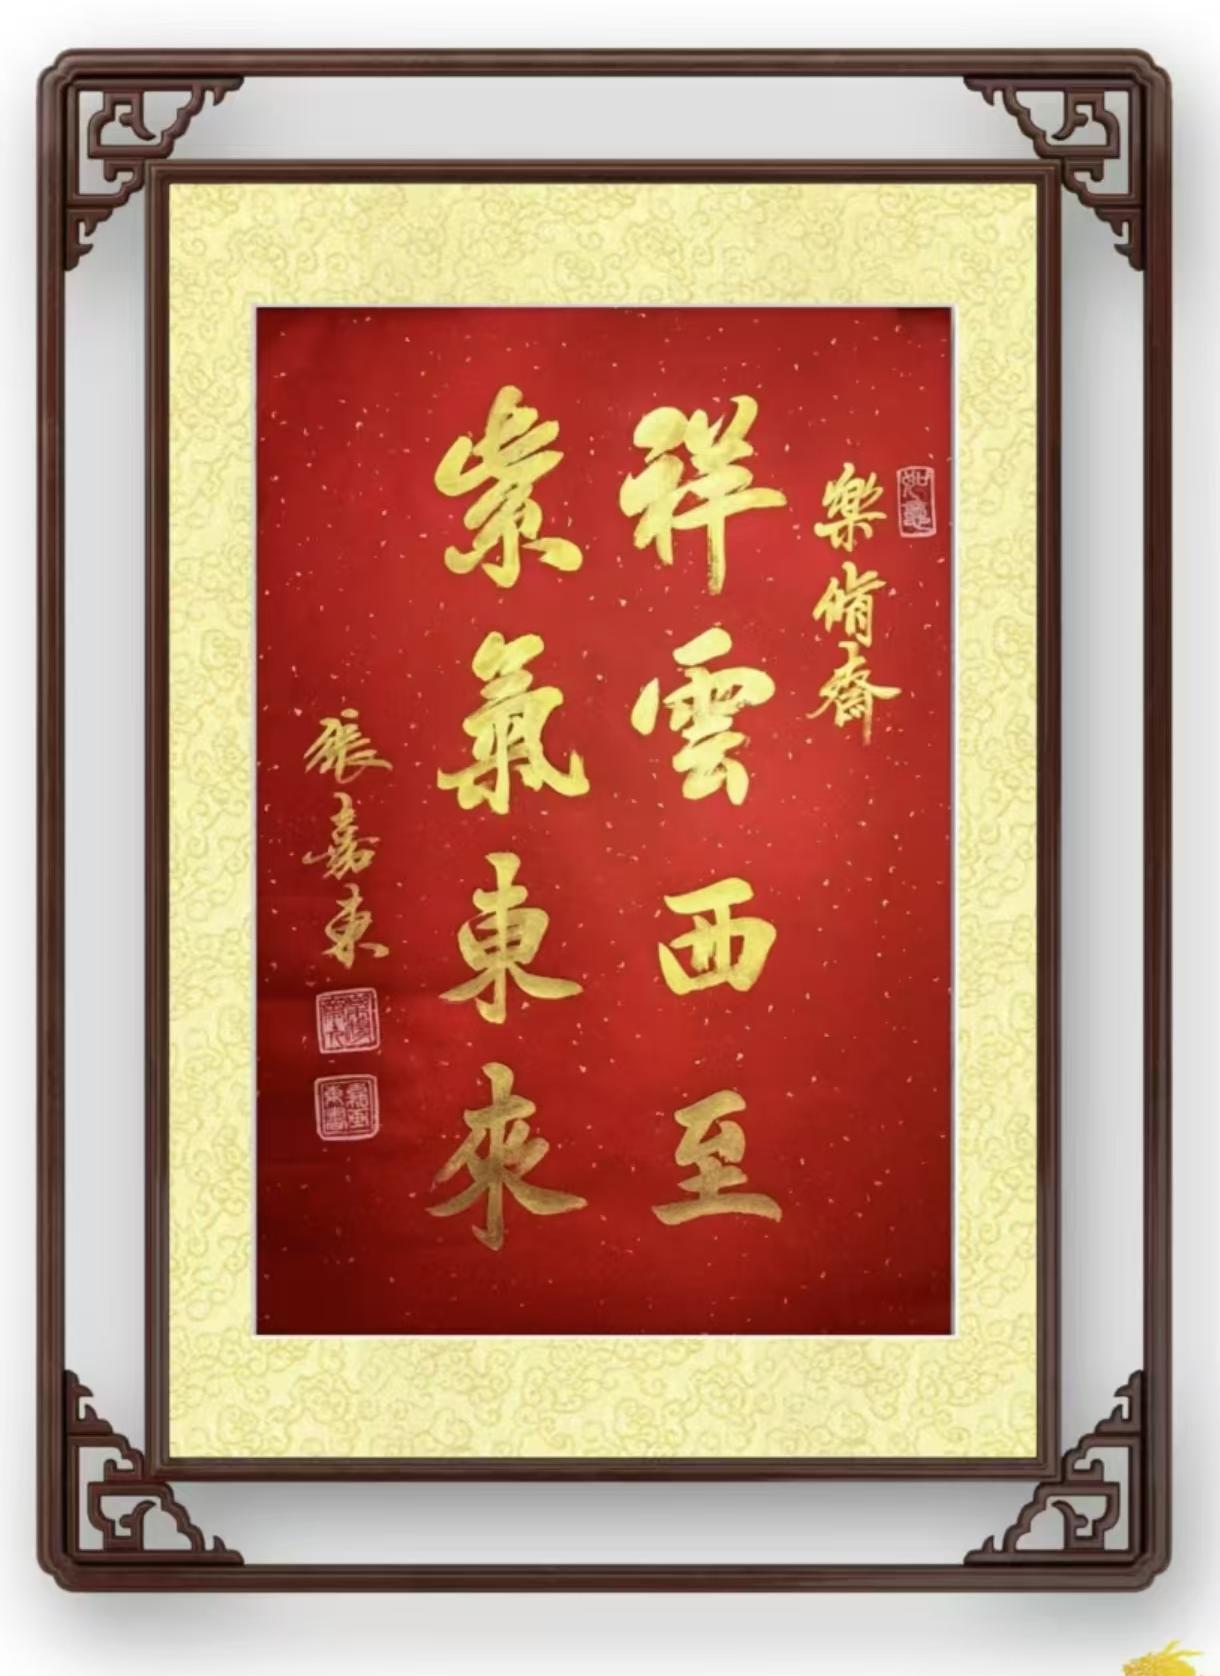 如意
樂脩齋
祥雲西至
紫氣東來
張嘉東